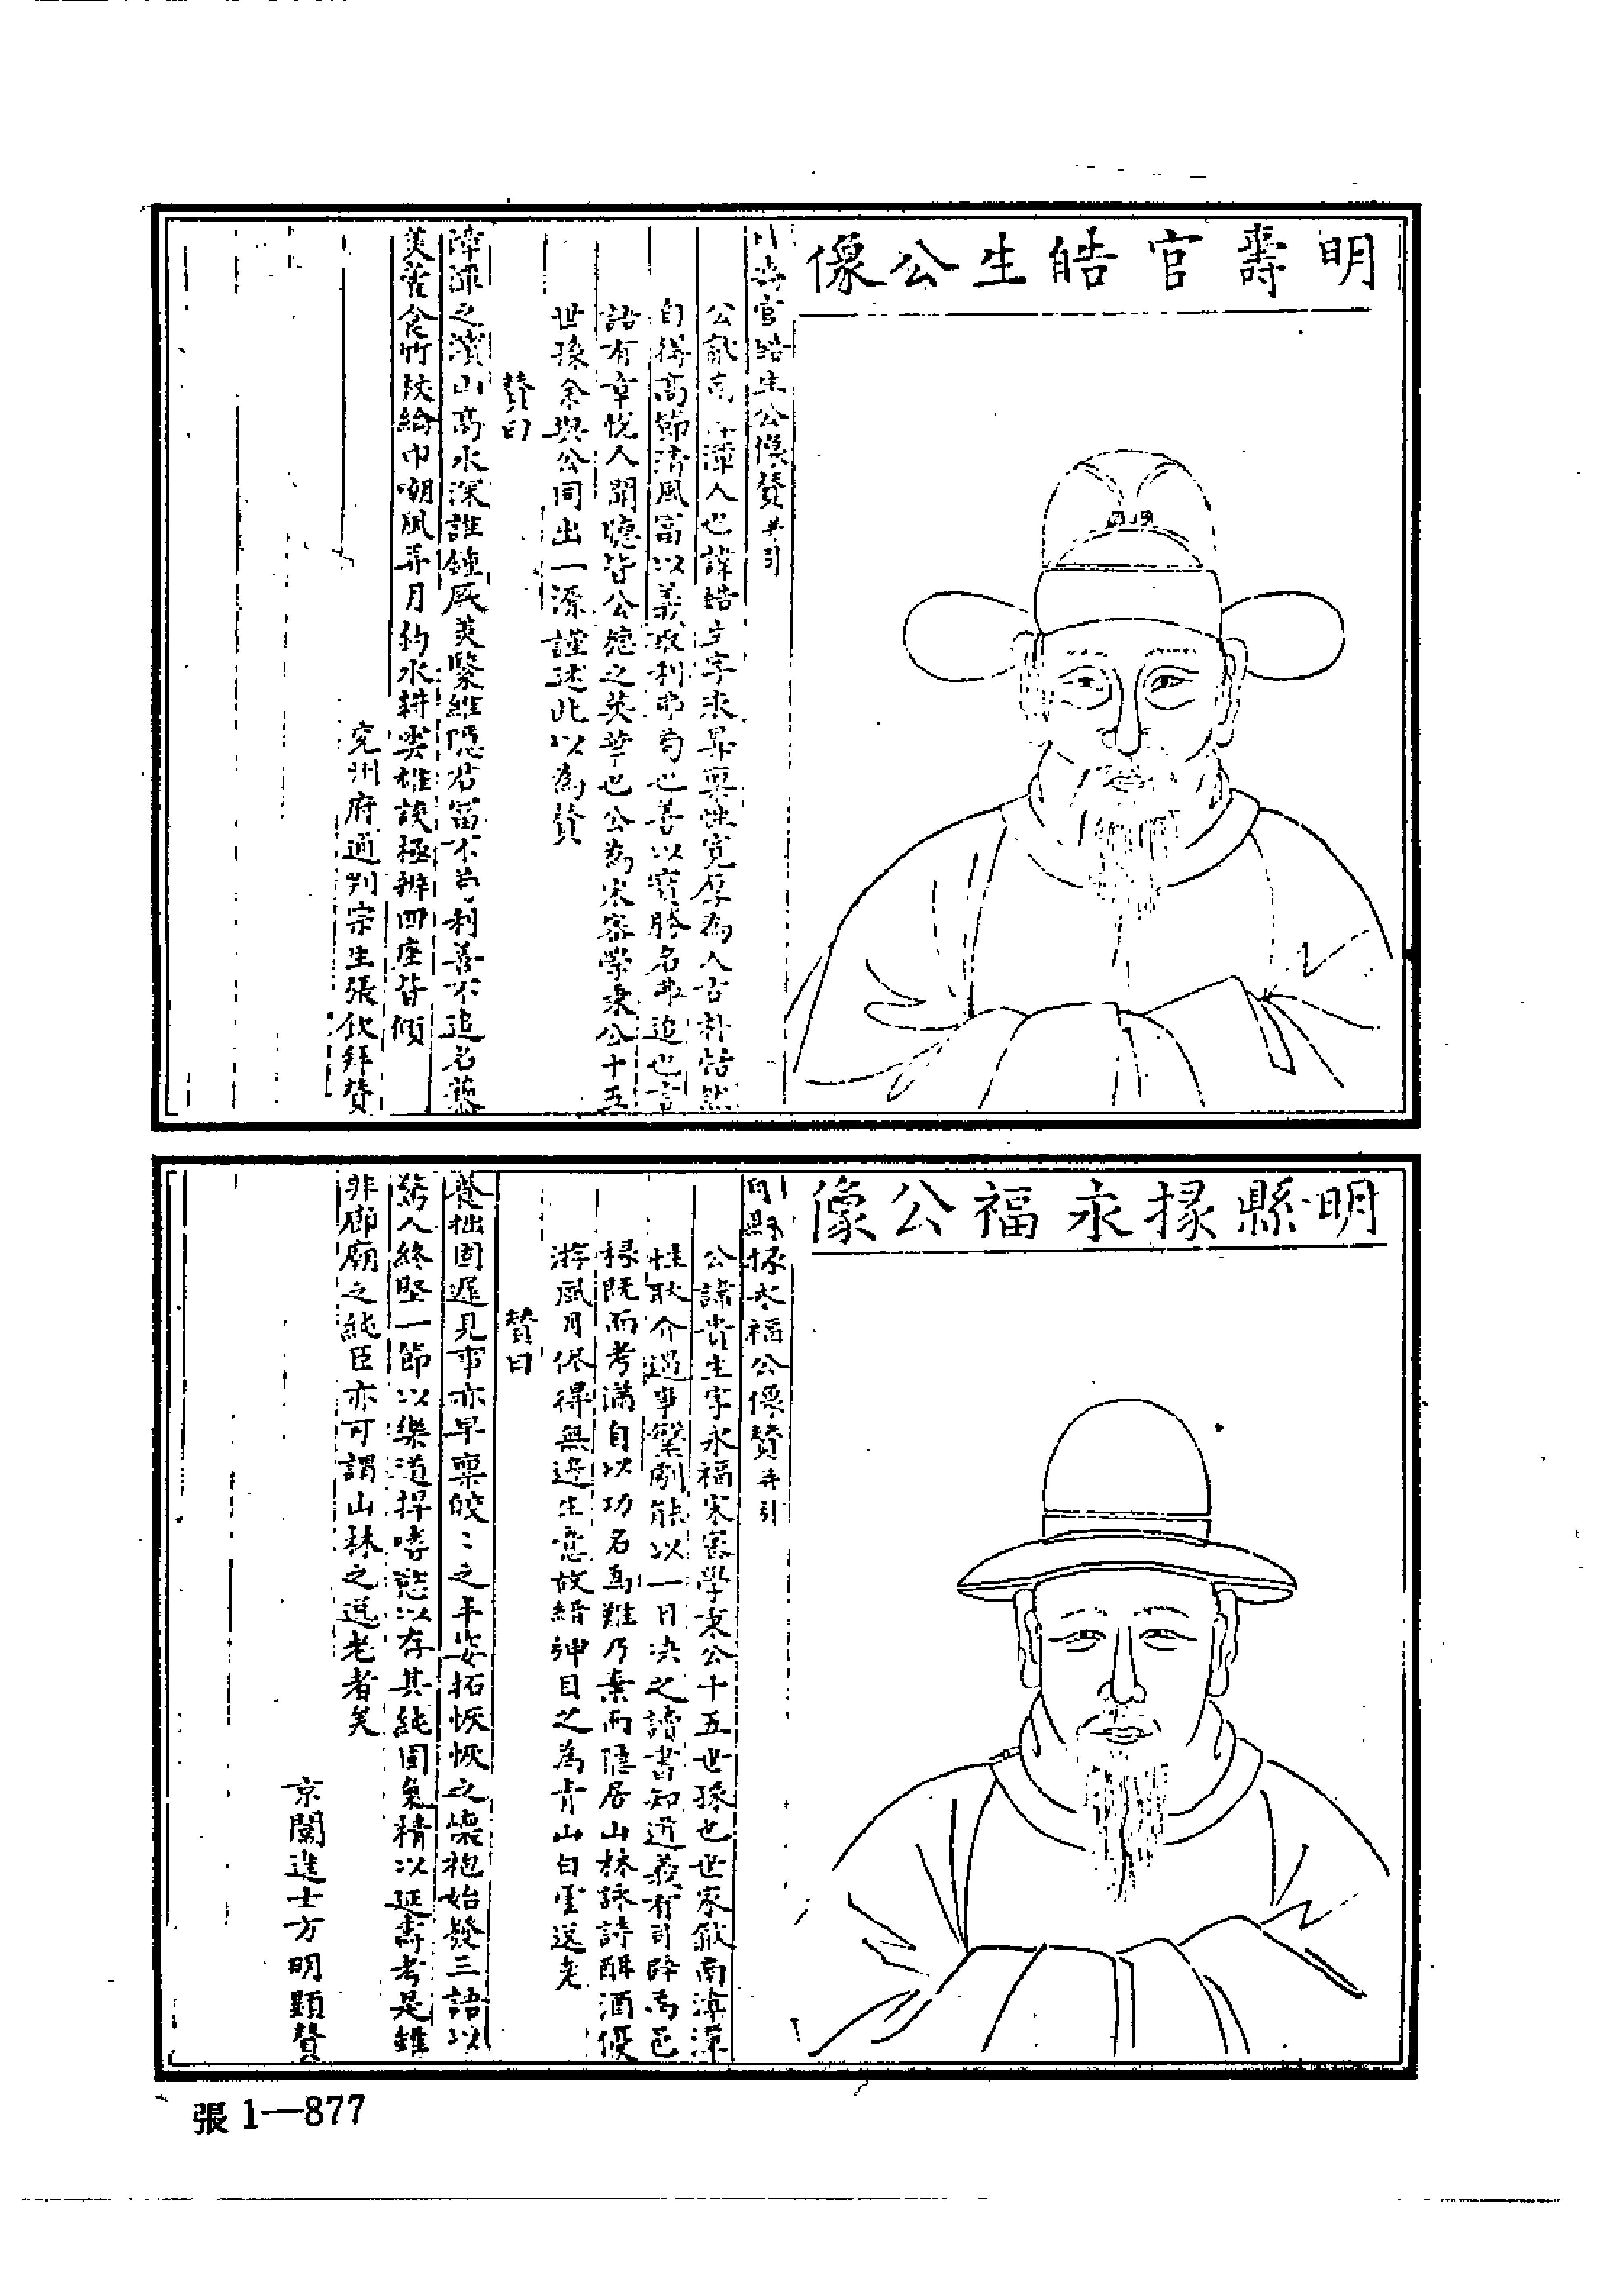 明壽官皓生公像
官皓生公像贊并引
公歙南漳人也諱皓生字永昇稟性寬厚為人古朴恬然
自得高節清風富以義取利弗苟也善以實勝名弗追也言
語有章悅人聞聽皆公德之英華也公為宋宻學秉公十五
世孫余與公同出一源謹述此以為贊
贊曰
漳潭之濱山高水深誰鍾厥美繄維隱君富不苟利善不追名藜
羹黃食竹杖綸巾嘲風弄月釣水耕雲雄談極辨四座皆傾
兖州府通判宗生張欽拜贊
明縣掾永福公像
明縣掾永福公像贊并引
公諱貴生字永福宋宻學秉公十五世孫也世家歙南漳潭
性耿介遇事繁劇能以一日决之讀書知道義有司辟為邑
掾既而考滿自以功名為難乃棄而隱居山林詠詩酣酒優
游風月伓得無邊生意故縉紳目之為青山白雲逸老
贊曰
養拙固遲見事亦早稟皎〻之年姿拓恢恢之懷袍始發三語以
驚人終堅一節以樂道捍嗜慾以存其純固氣精以延壽考是雖
非廊廟之純臣亦可謂山林之逸老者矣
京闈進士方明顯贊
張1—877